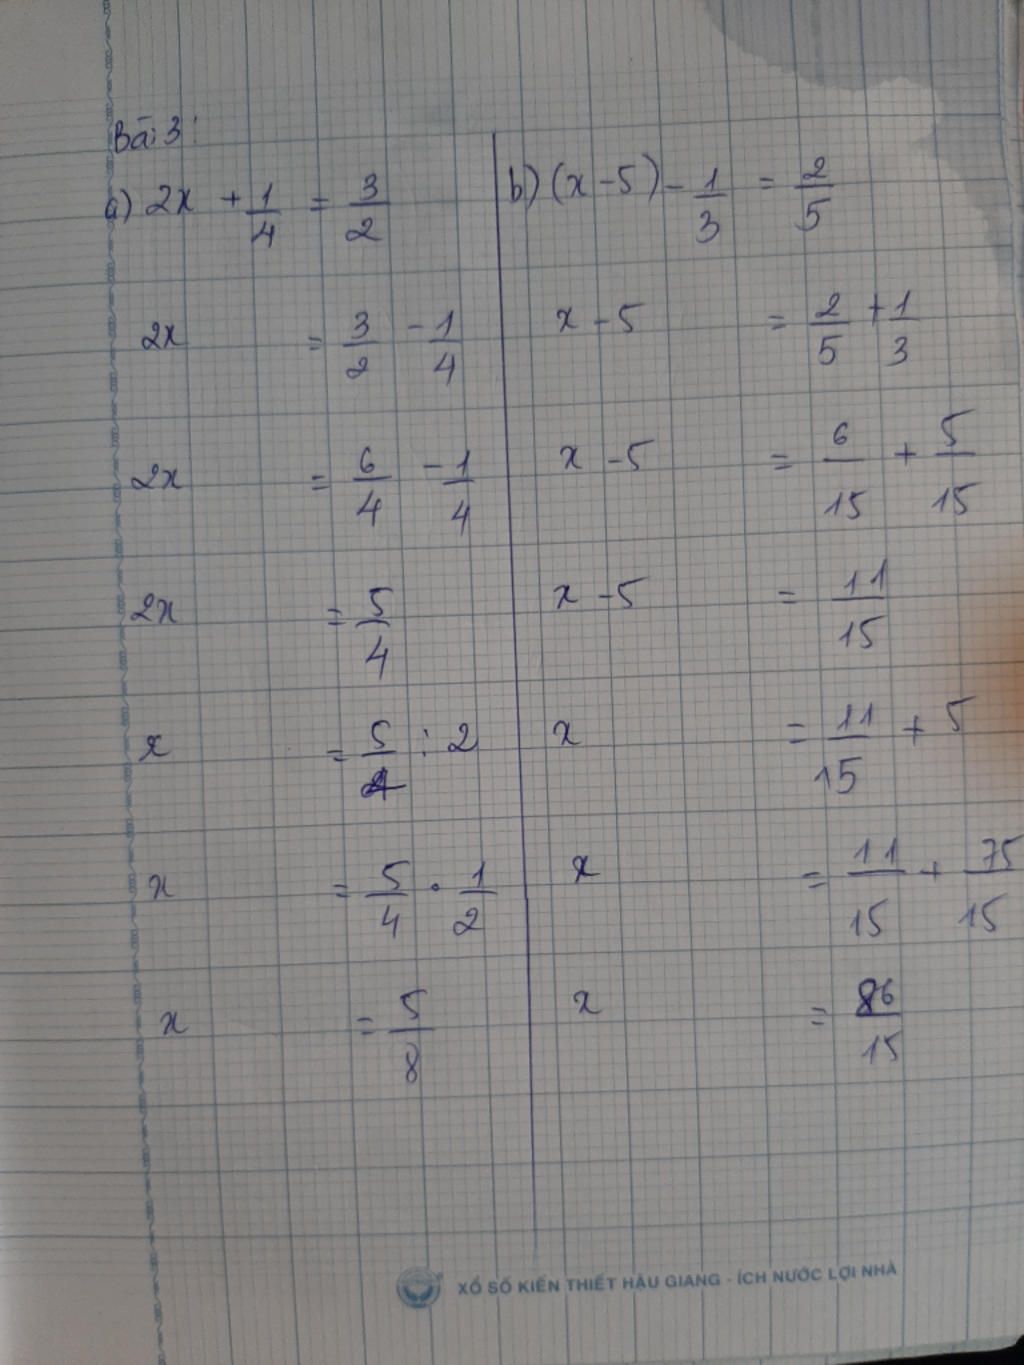 Bài 3:
a) 2x + 1/4 = 3/2
2x = 3/2 - 1/4
2x = 6/4 - 1/4
2x = 5/4
x = 5/4 : 2
x = 5/4 . 1/2
x = 5/8
b) (x - 5) - 1/3 = 2/5
x - 5 = 2/5 + 1/3
x - 5 = 6/15 + 5/15
x - 5 = 11/15
x = 11/15 + 5
x = 11/15 + 75/15
x = 86/15
XỔ SỐ KIẾN THIẾT HẬU GIANG - ÍCH NƯỚC LỢI NHÀ